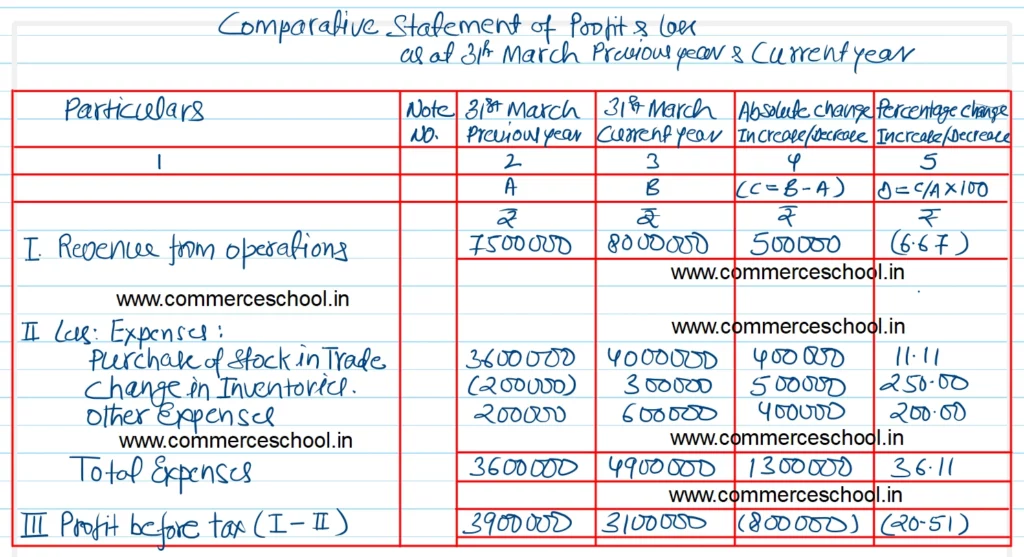 Comparative Statement of Profit & loss
as at 31st March Previous year & Current year
Particulars Note No. 31st March Previous year 31st March Current year Absolute change Increase/Decrease Percentage change Increase/Decrease
1 2 3 4 5
A B (C=B-A) D=C/A×100
₹ ₹ ₹ ₹
I. Revenue from operations 7500000 8000000 500000 (6.67)
www.commerceschool.in
www.commerceschool.in
II Less: Expenses: www.commerceschool.in
Purchase of Stock in Trade 3600000 4000000 400000 11.11
Change in Inventories. (200000) 300000 500000 250.00
Other Expenses 200000 600000 400000 200.00
www.commerceschool.in www.commerceschool.in
Total Expenses 3600000 4900000 1300000 36.11
www.commerceschool.in
III Profit before tax (I-II) 3900000 3100000 (800000) (20.51)